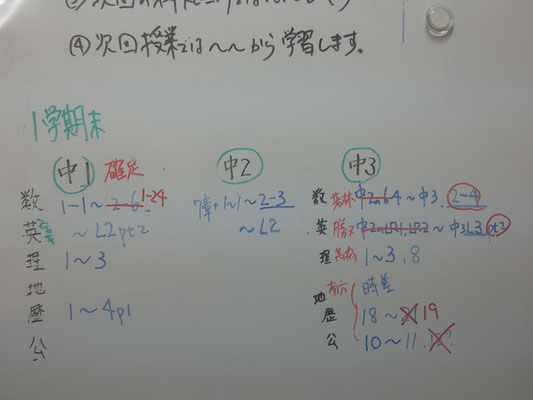 ④次回授業では〜〜から学習します。
1学期末
中1 確定 中2 中3
数 1-1〜2-6 1-24 7章+1〜1〜2-3 数 中2 6.4〜中3. 2-4
英 〜L2pt2 〜L2 英 中2LR1,LR2〜中3L3 pt2
理 1〜3 理 1〜3, 8
地 地 時差
歴 1〜4p1 歴 18〜21 19
公 公 10〜11.